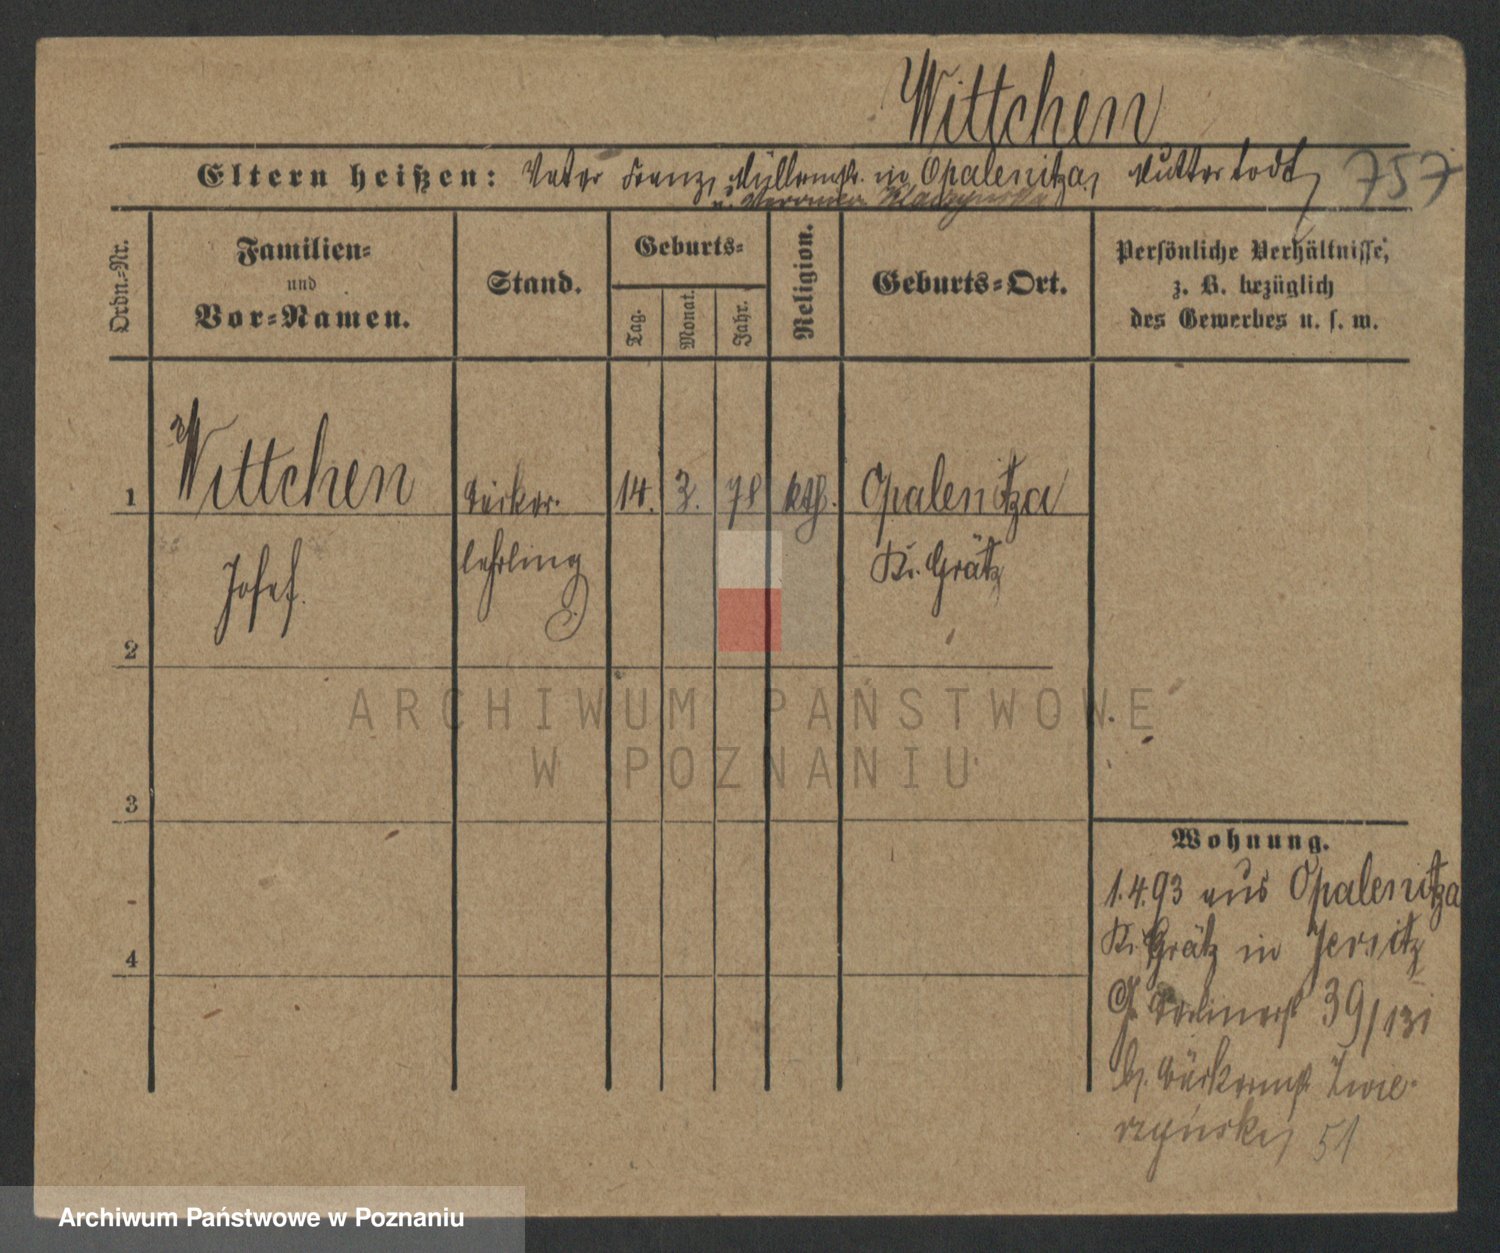 Wittchen
Eltern heißen: Vater Franz, Müllermstr. in Opalenitza, Mutter todt, 757
u. Veronica
Ordn.-Nr.
Familien-
und
Vor-Namen.
Stand.
Geburts-
Tag.
Monat.
Jahr.
Religion.
Geburts-Ort.
Persönliche Verhältnisse,
z. B. bezüglich
des Gewerbes u. s. w.
1 Wittchen Bäcker- 14. 3. 78 kth. Opalenitza
Josef. lehrling Kr. Grätz
2
3
4
ARCHIWUM PAŃSTWOWE
W POZNANIU
Wohnung.
1.4.93 aus Opalenitza
Kr. Grätz in Jersitz
Gr. Berlinerst 39/131
b. Bäckermstr. Zwie-
rzynski 51
Archiwum Państwowe w Poznaniu